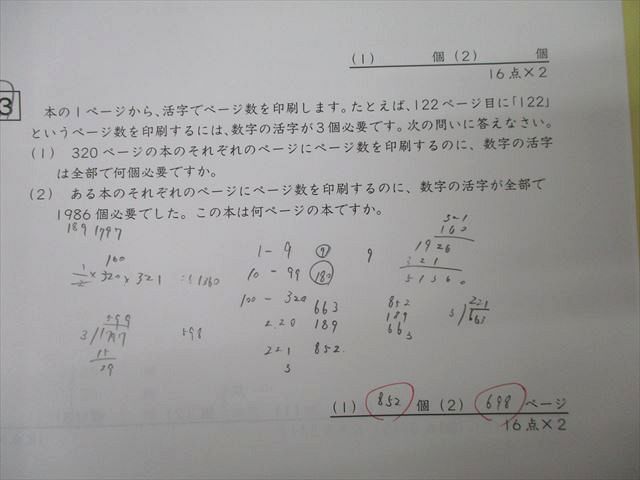 (1) 個 (2) 個
16点×2
3
本の1ページから、活字でページ数を印刷します。たとえば、122ページ目に「122」
というページ数を印刷するには、数字の活字が3個必要です。次の問いに答えなさい。
(1) 320ページの本のそれぞれのページにページ数を印刷するのに、数字の活字
は全部で何個必要ですか。
(2) ある本のそれぞれのページにページ数を印刷するのに、数字の活字が全部で
1986個必要でした。この本は何ページの本ですか。
189 1797
160
×320×321
1-9 9 9
10-99 180
100-320 663
2.20 189
221 852.
3
321
160
1926
321
51360
852
189
663
3 221
663
599
3 1797
15
29
598
(1) 852 個 (2) 698 ページ
16点×2